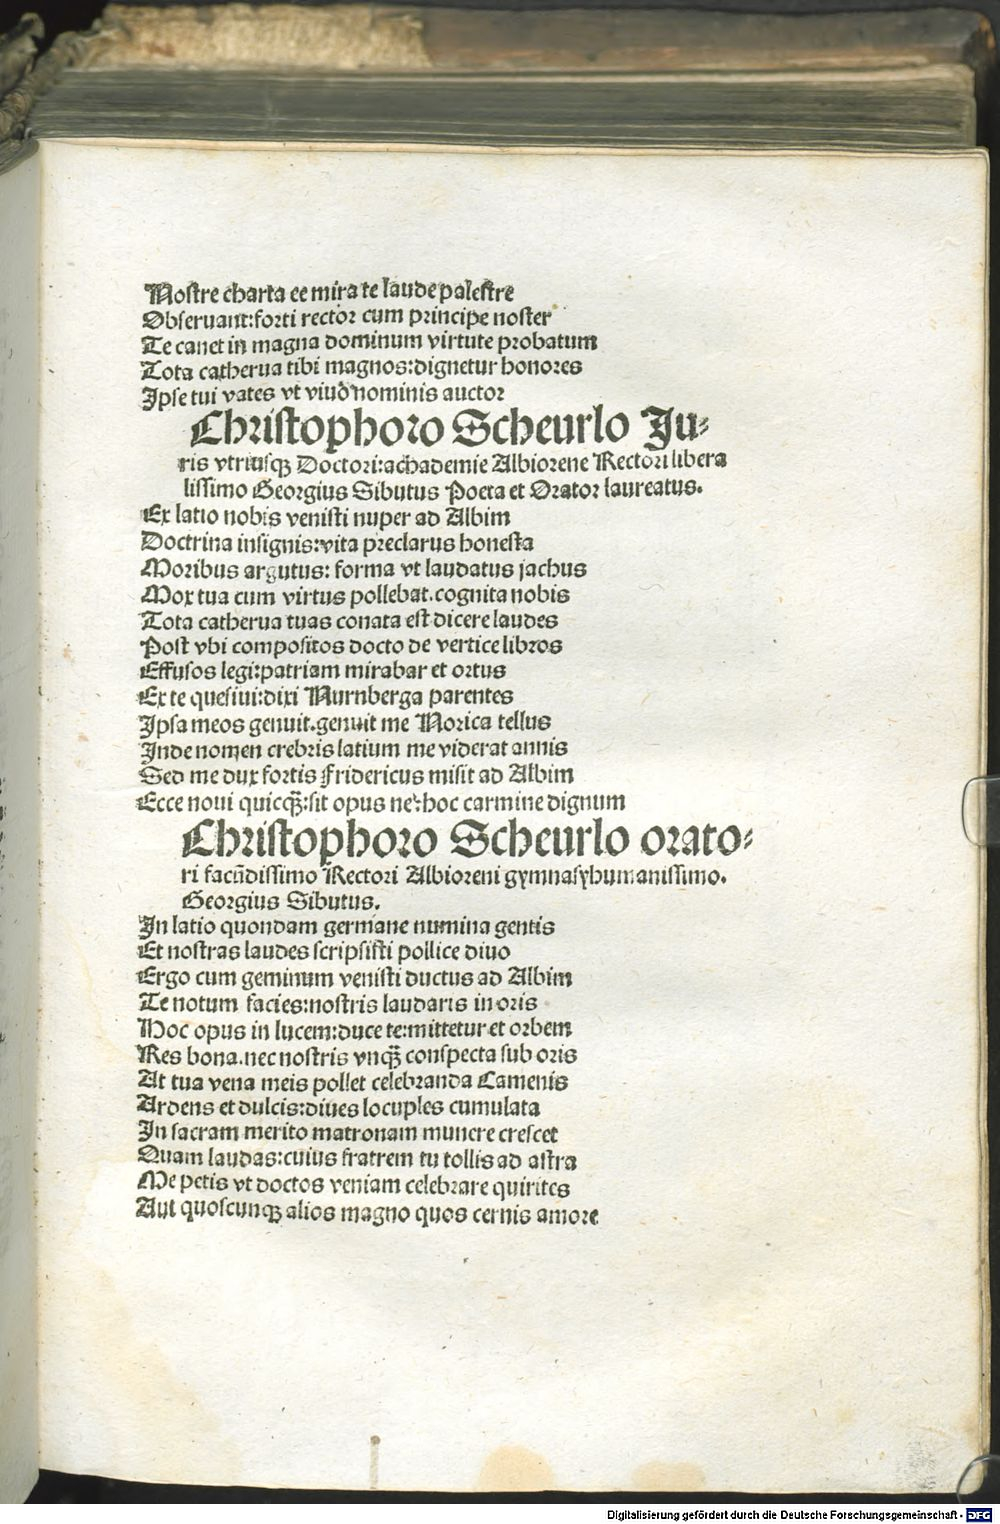 Nostre charta ee mira te laude palestre
Obseruant:forti rector cum principe noster
Te canet in magna dominum virtute probatum
Tota catherua tibi magnos:dignetur honores
Ipse tui vates vt viud' nominis auctor
Christophoro Scheurlo Ju-
ris vtriusqꝫ Doctori:achademie Albiorene Rectori libera
lissimo Georgius Sibutus Poeta et Orator laureatus.
Ex latio nobis venisti nuper ad Albim
Doctrina insignis:vita preclarus honesta
Moribus argutus: forma vt laudatus jachus
Mox tua cum virtus pollebat.cognita nobis
Tota catherua tuas conata est dicere laudes
Post vbi compositos docto de vertice libros
Effusos legi:patriam mirabar et ortus
Ex te quesiui:dixi Nurnberga parentes
Ipsa meos genuit.genuit me Norica tellus
Inde nomen crebris latium me viderat annis
Sed me dux fortis Fridericus misit ad Albim
Ecce noui quicqꝫ̃:sit opus ne':hoc carmine dignum
Christophoro Scheurlo orato-
ri facũdissimo Rectori Albioreni gymnasyhumanissimo.
Georgius Sibutus.
In latio quondam germane numina gentis
Et nostras laudes scripsisti pollice diuo
Ergo cum geminum venisti ductus ad Albim
Te notum facies:nostris laudaris in oris
Hoc opus in lucem:duce te:mittetur et orbem
Res bona.nec nostris vnqꝫ̃ conspecta sub oris
At tua vena meis pollet celebranda Camenis
Ardens et dulcis:diues locuples cumulata
In sacram merito matronam munere crescet
Quam laudas:cuius fratrem tu tollis ad astra
Me petis vt doctos veniam celebrare quirites
Aut quoscunqꝫ alios magno quos cernis amore
Digitalisierung gefördert durch die Deutsche Forschungsgemeinschaft - DFG